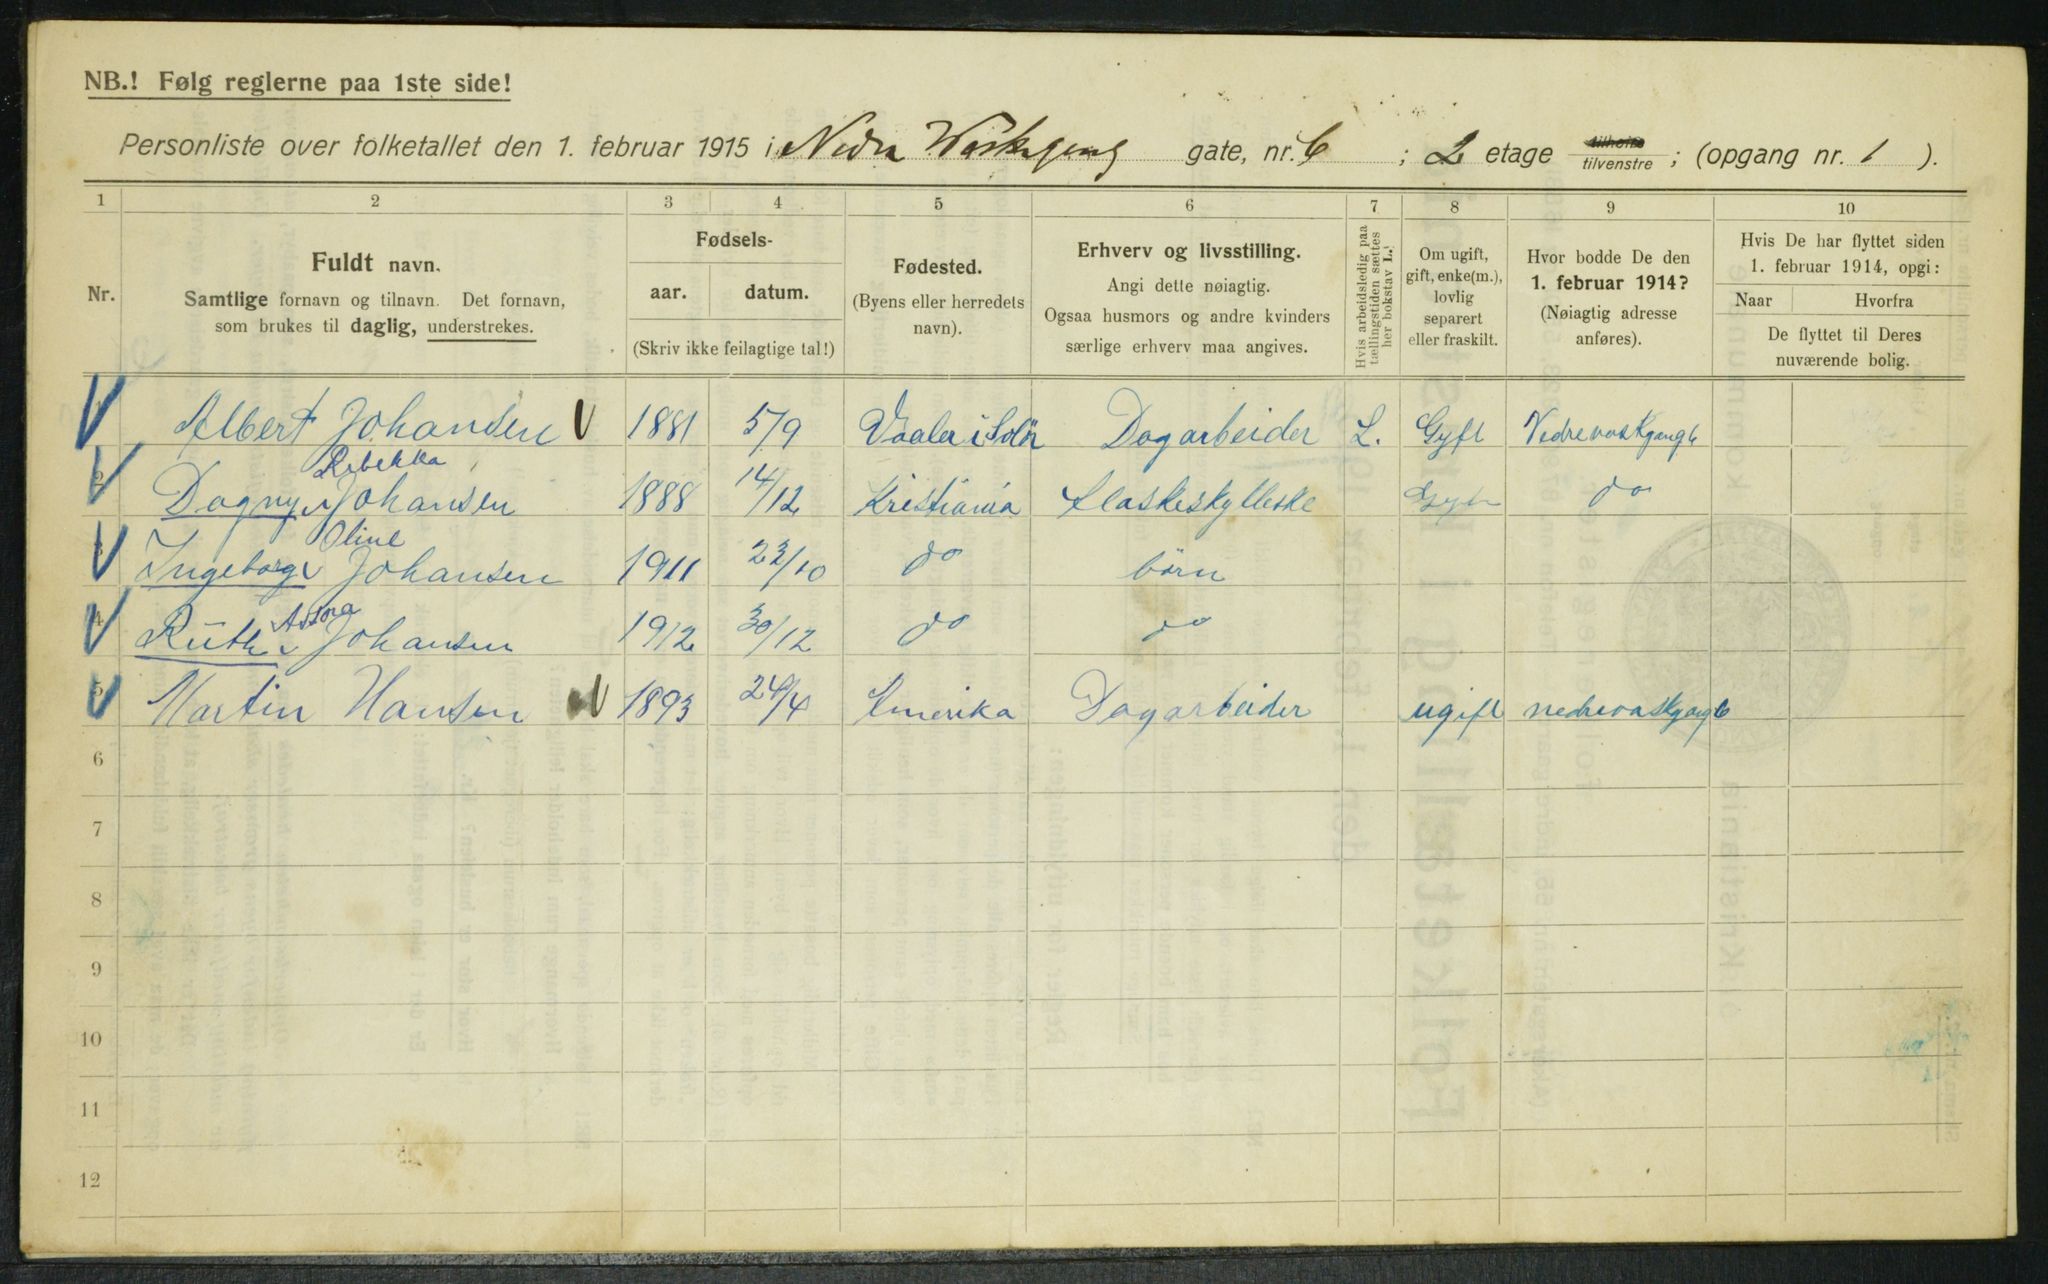 NB.! Følg reglerne paa 1ste side!
Personliste over folketallet den 1. februar 1915 i Nedre Waskegang gate, nr. 6 ; 2 etage tilhøire tilvenstre ; (opgang nr. 1 ).
1 2 3 4 5 6 7 8 9 10
Nr.
Fuldt navn.
Samtlige fornavn og tilnavn. Det fornavn,
som brukes til daglig, understrekes.
Fødsels-
aar. datum.
(Skriv ikke feilagtige tal!)
Fødested.
(Byens eller herredets
navn).
Erhverv og livsstilling.
Angi dette nøiagtig.
Ogsaa husmors og andre kvinders
særlige erhverv maa angives.
Hvis arbeidsledig paa
tællingstiden sættes
her bokstav L.!
Om ugift,
gift, enke(m.),
lovlig
separert
eller fraskilt.
Hvor bodde De den
1. februar 1914?
(Nøiagtig adresse
anføres).
Hvis De har flyttet siden
1. februar 1914, opgi:
Naar Hvorfra
De flyttet til Deres
nuværende bolig.
Albert Johansen 1881 5/9 Vaaler i Solör Dagarbeider L. Gyft Nedrevaskgang 6
2 Dagny Rebekka Johansen 1888 14/12 Kristiania flaskeskylleske Gyft do
3 Ingeborg Oline Johansen 1911 23/10 do börn
4 Ruth Astra Johansen 1912 30/12 do do
5 Martin Hansen 1893 24/4 Amerika Dagarbeider ugift nedrevaskgang 6
6
7
8
9
10
11
12